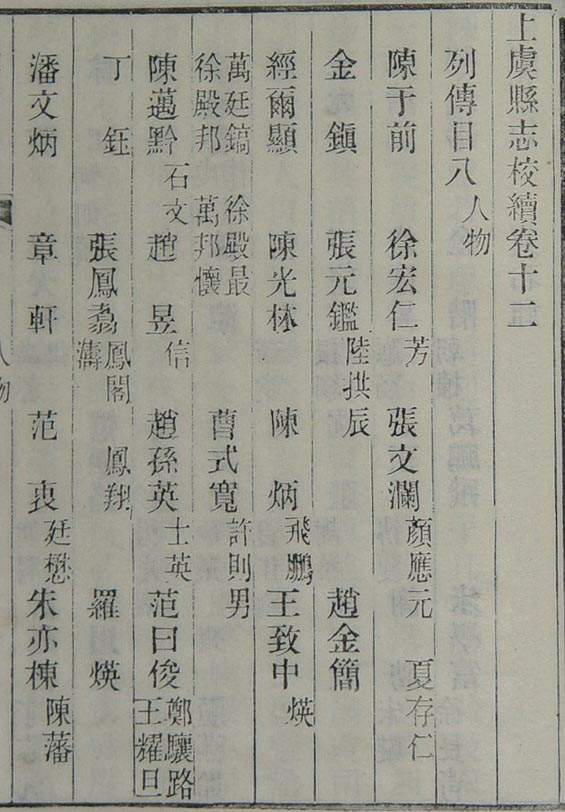 上虞縣志校續卷十二
列傳目八 人物
陳于前 徐宏仁 芳 張文瀾 顏應元 夏存仁
金鎭 張元鑑 陸拱辰 趙金簡
經爾顯 陳光林 陳炳 飛鵬 王致中 煐
萬廷鎬 徐殿最 徐殿邦 萬邦懷 曹式寬 許則男
陳邁黔 石文 趙昱 信 趙孫英 士英 范日俊 鄭驤路 王耀旦
丁鈺 張鳳翥 鳳閣 鳳翔 濤 羅煐
潘文炳 章軒 范衷 廷懋 朱亦棟 陳藩
人物